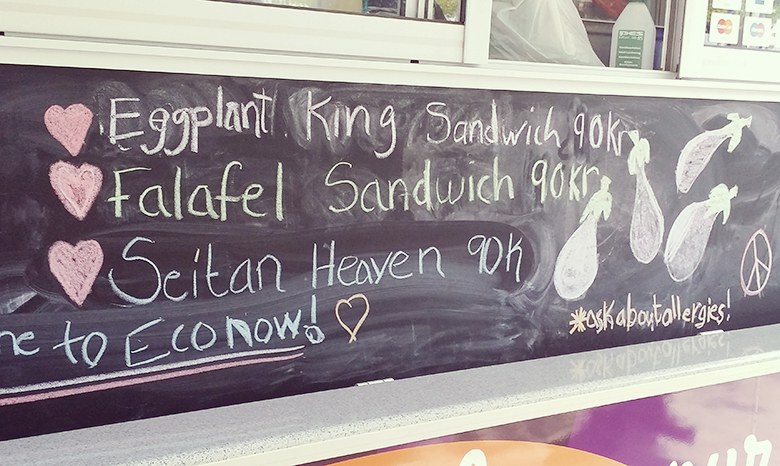 Eggplant King Sandwich 90kr
Falafel Sandwich 90kr
Seitan Heaven 90K
me to Econow!
*ask about allergies!